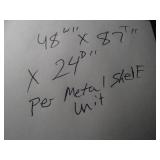 48W" X 87T"
X 24D"
Per Metal Shelf
Unit